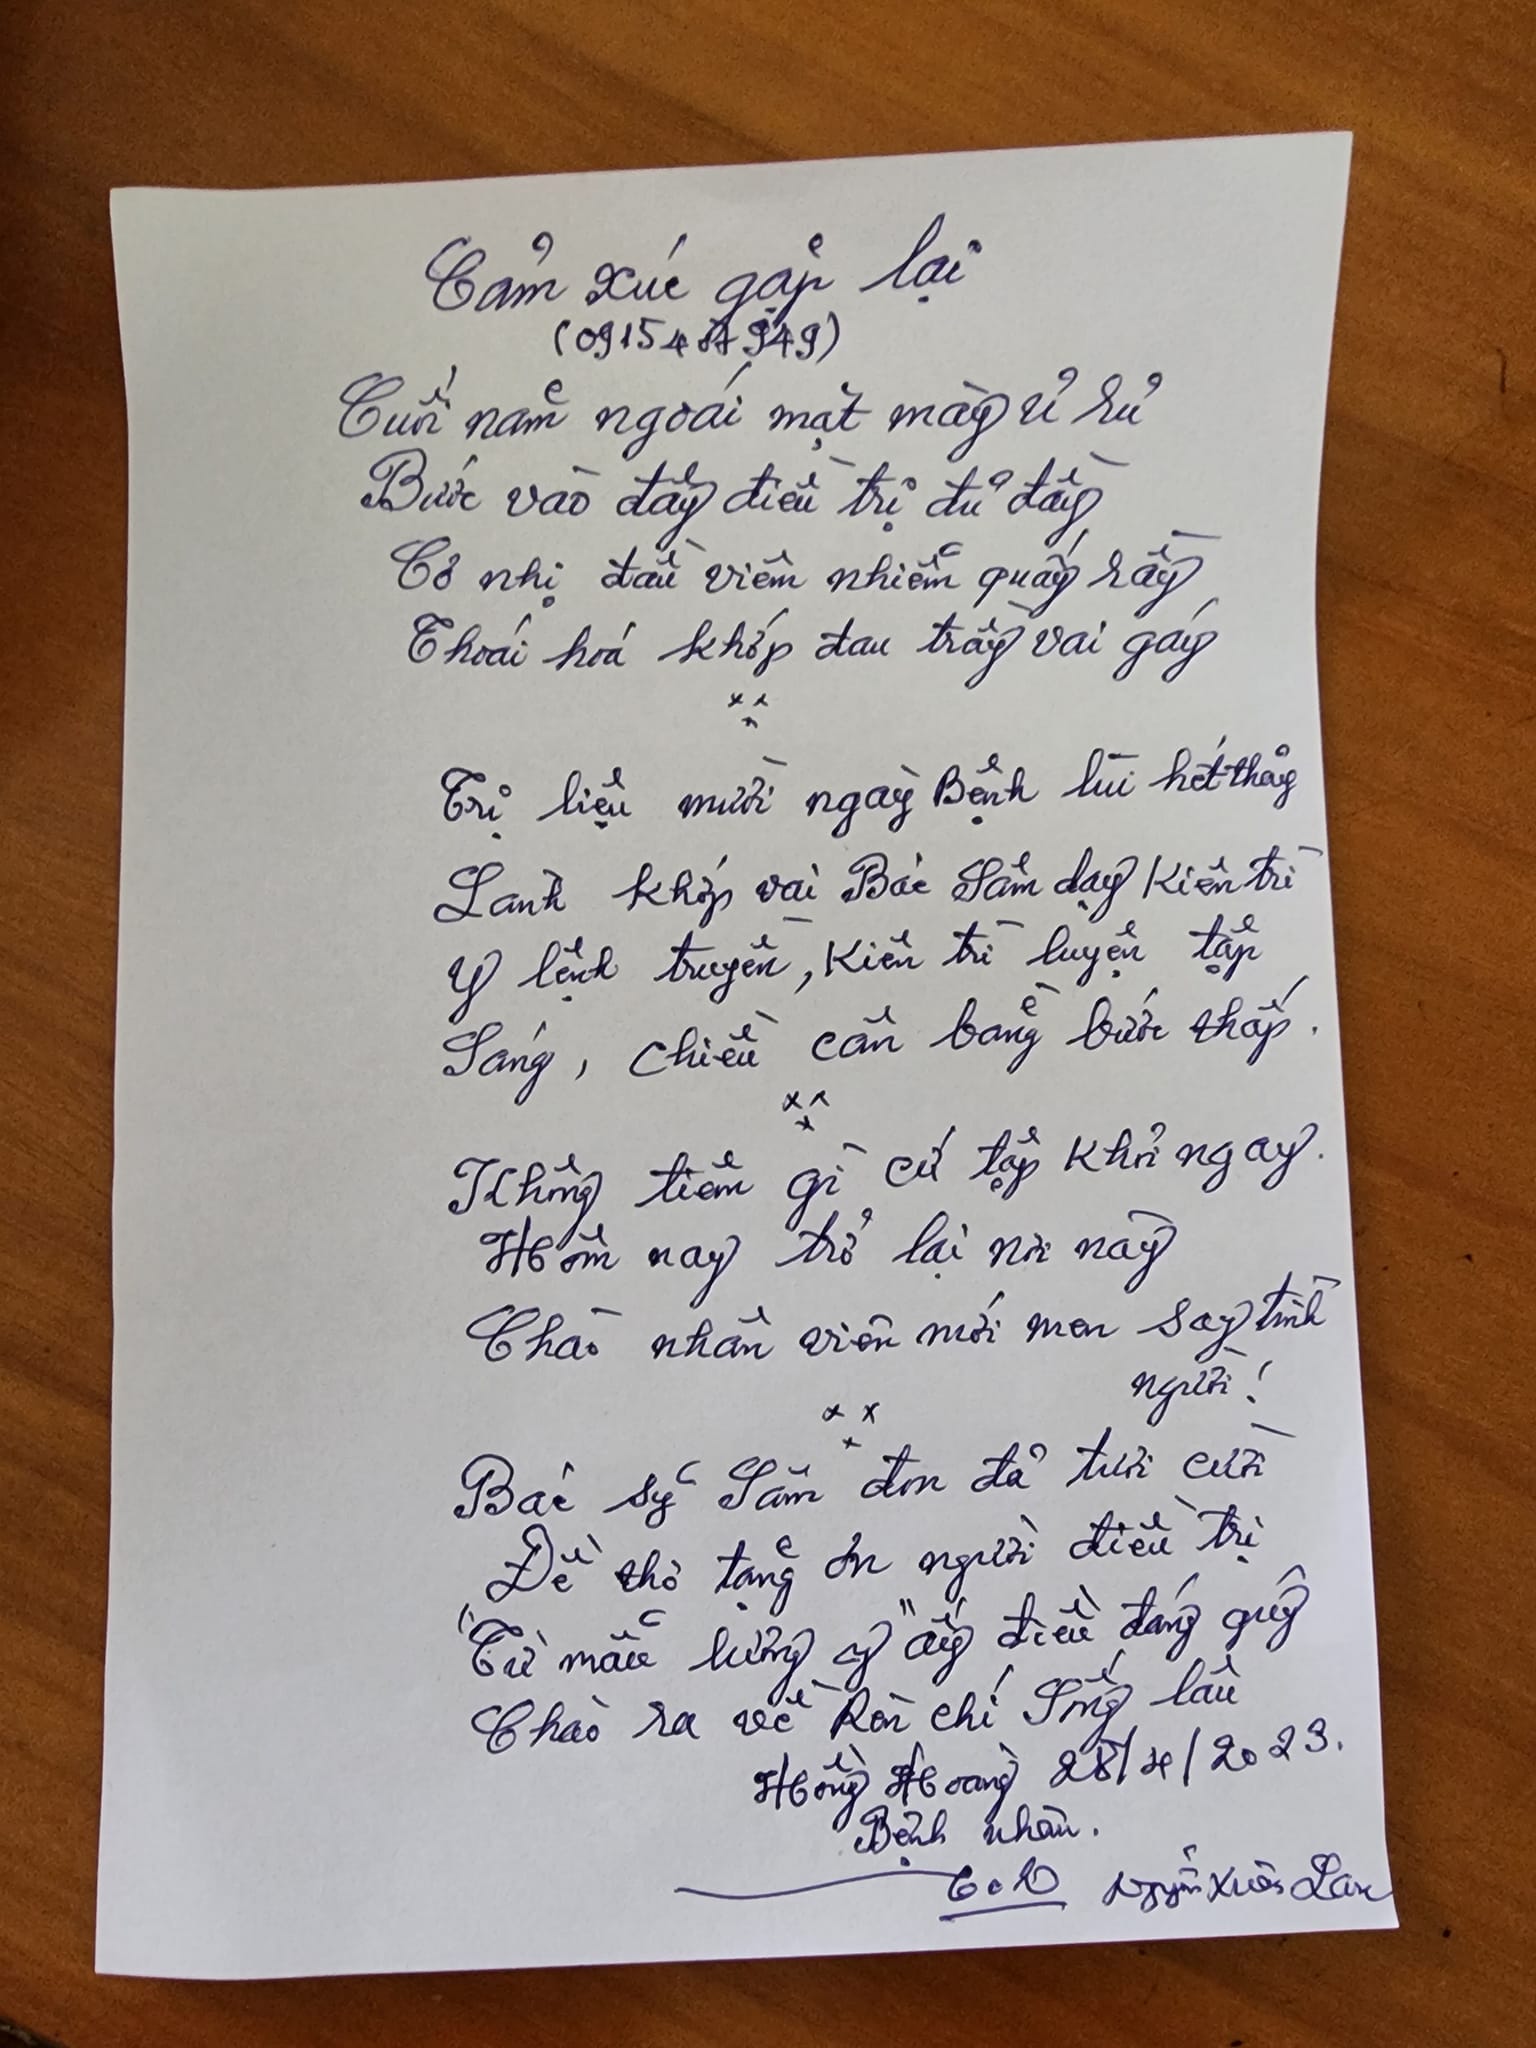 Cảm xúc gặp lại
(0915487949)
Cuối năm ngoái mặt mày ủ rủ
Bước vào đây điều trị đủ đầy
Cơ nhị đầu viêm nhiễm quấy rầy
Thoái hoá khớp đau trầy vai gáy
Trị liệu mười ngày Bệnh lùi hết thảy
Lành khớp vai Bác Sâm dạy Kiên trì
Y lệnh truyền, Kiên trì luyện tập
Sáng, chiều cân bằng bước thấp.
Không tiêm gì cứ tập khỏi ngay.
Hôm nay trở lại nơi này
Chào nhân viên mới men say tình
người!
Bác sỹ Sâm đon đả tươi cười
Đề thơ tặng ơn người điều trị
"Từ mẫu lương y" ấy điều đáng quý
Chào ra về Rèn chí Sống lâu
Hồng Hoàng 28/4/2023.
Bệnh nhân.
Nguyễn Xuân Lan